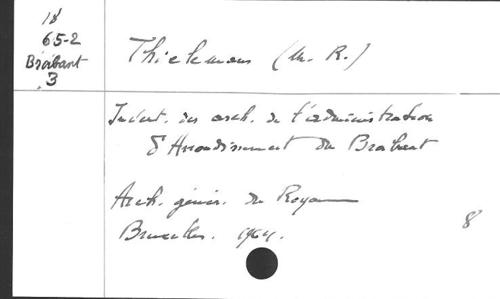 18
65-2
Brabant
3
Thielemans (M. R.)
Invent. des arch. de l'administration
d'Arrondissement du Brabant
Arch. génér. du Royaume
Bruxelles. 1964.
8